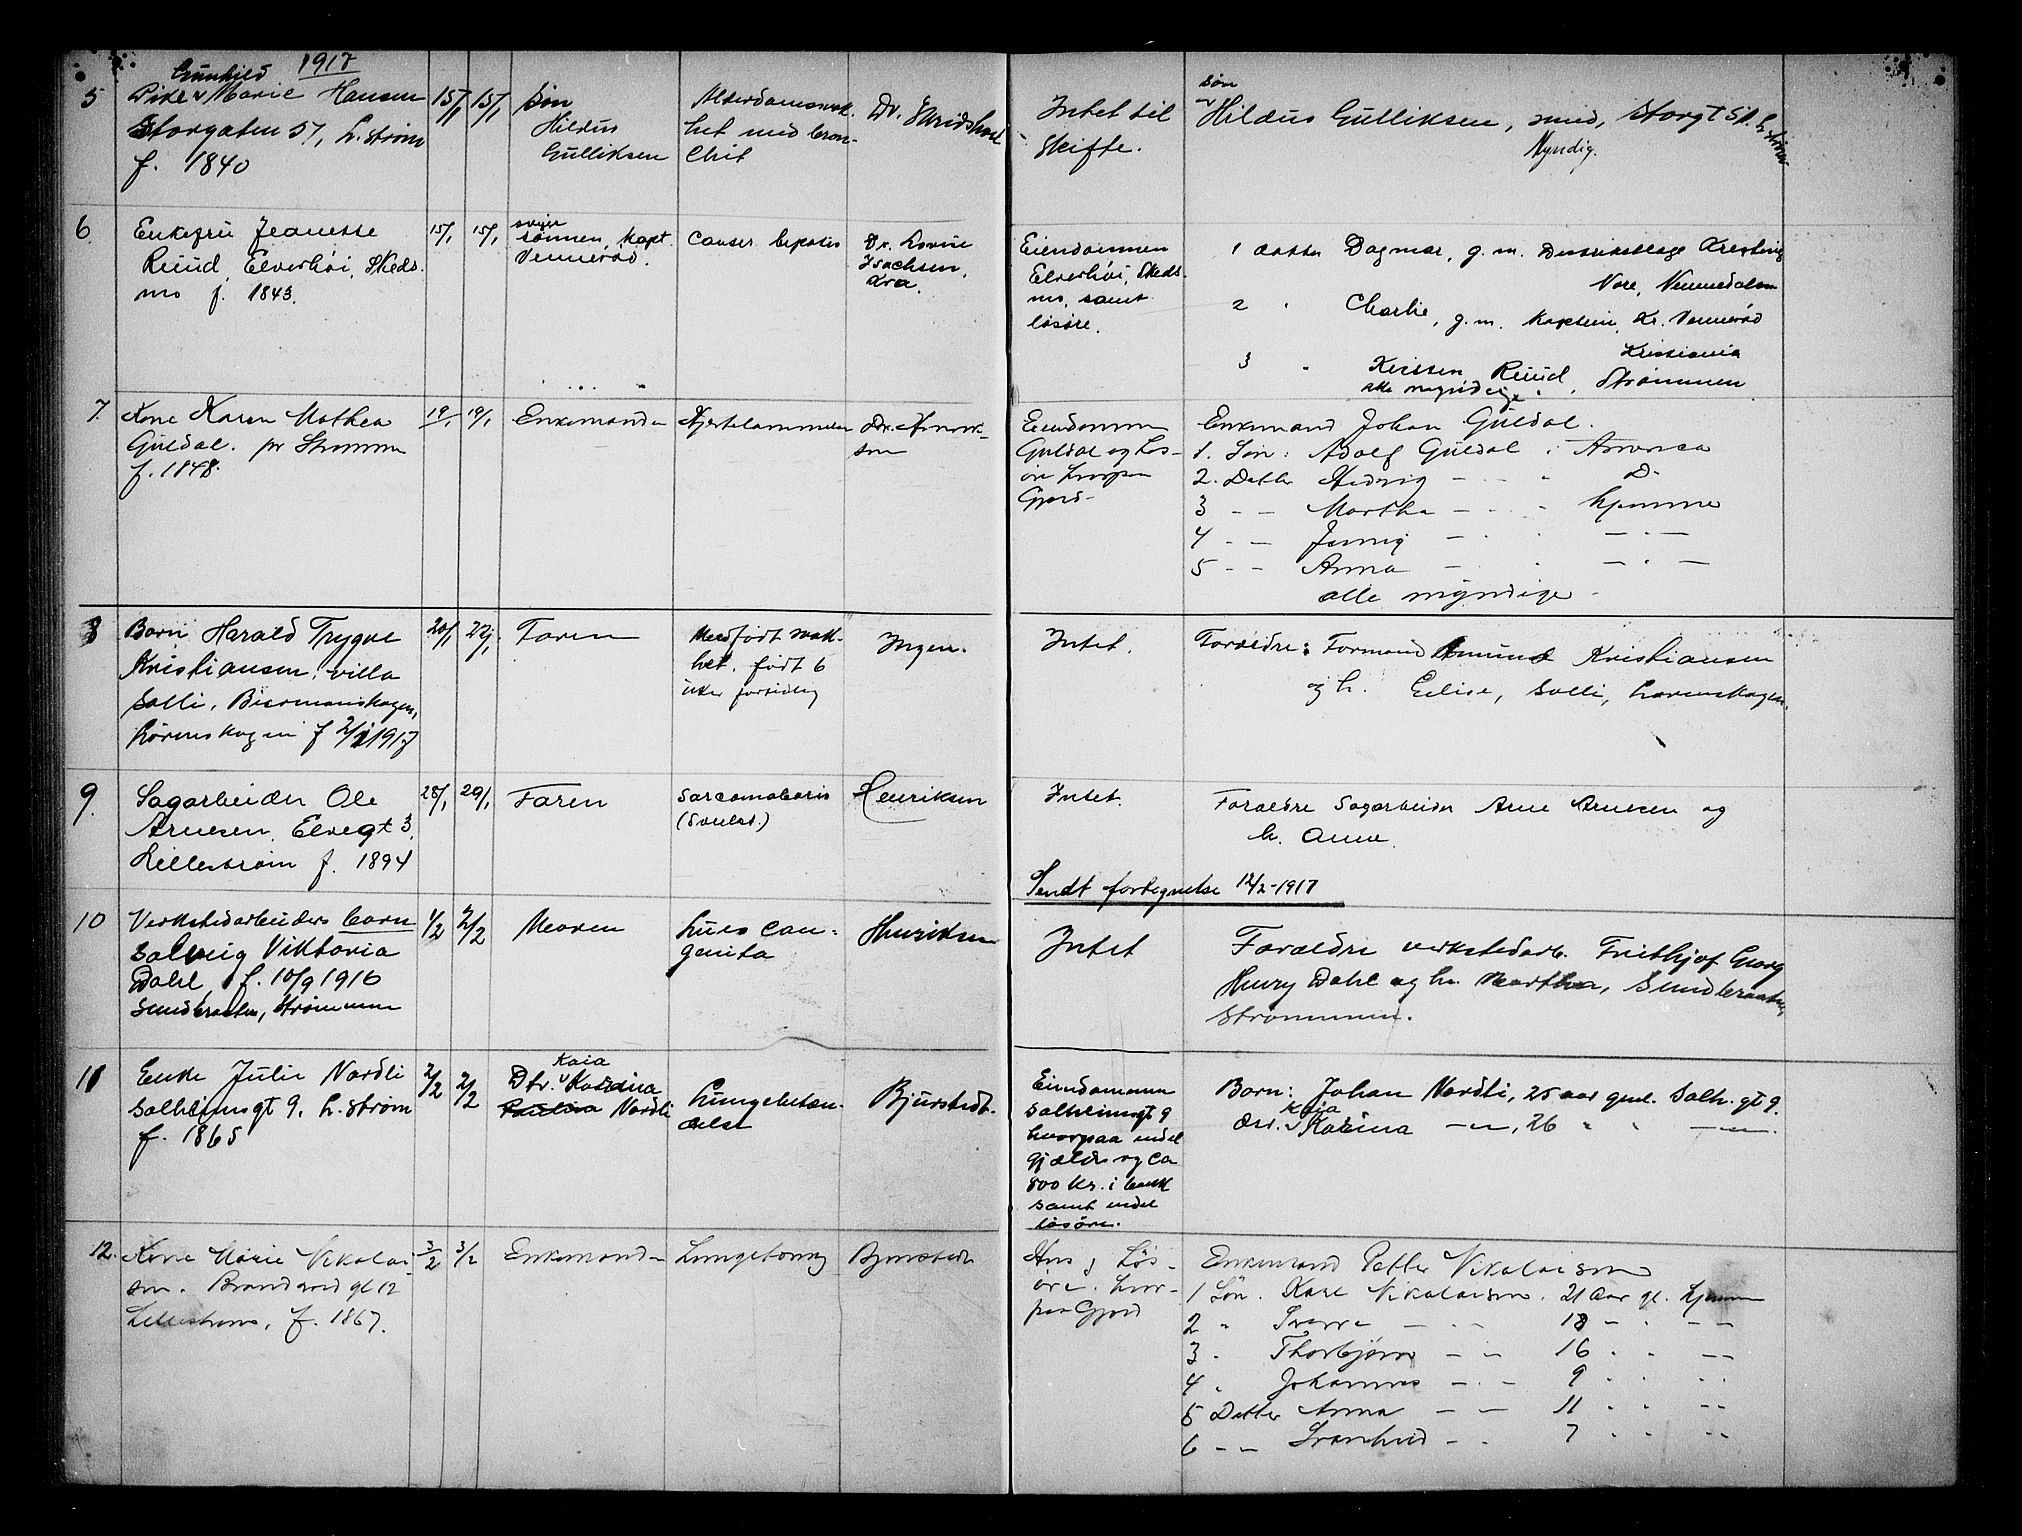 1917
5
Gunhild
Pike Marie Hansen
Storgaten 51, L.strøm
f. 1840
15/1
15/1
Søn
Hildus
Gulliksen
Alderdomssvak.
het med bron-
chit
Dr.
Intet til
Skifte.
søn
Hildus Gulliksen, smed, Storgt 51. L.strøm
Myndig.
6.
Enkefru Jeanette
Ruud, Elverhøi, Skeds.
mo f. 1843.
15/1
15/1
sviger
sønnen, Kapt.
Vennerød.
Cancer hepatis
Dr.
Isachsen,
Kra.
Eiendommen
Elverhøi, Skeds.
mo, samt
løsøre.
1 datter Dagmar, g. m. Distriktslæge
Nore, Nummedalen
2 " Charlie, g. m. Kaptein Kr. Vennerød
Kristiania
3 " Kirsten Ruud, Strømmen
alle myndige.
7.
Kone Karen Mathea
Guldal. pr Strømmen
f. 1848.
19/1
19/1
Enkemanden
Hjertelammelse
Dr.
Eiendommen
Guldal og Løs-
øre hvorpaa
Gjæld
Enkemand Johan Guldal.
1. Søn: Adolf Guldal i Amerika
2. Datter Hedvig — " Do
3 - - Martha — " hjemme
4 - - Jenny — " — " —
5 - - Anna — " — " —
alle myndige -
8
Barn Harald Trygve
Kristiansen, villa
Solli, Biermanskogen,
Lørenskogen f 2/1 1917
20/1
22/1
Faren
Medfødt svak-
het. født 6
uker fortidlig
Ingen.
Intet.
Forældre: Formand Amund Kristiansen
og h. Elise, Solli, Lørenskogen.
9.
Sagarbeider Ole
Arnesen, Elvegt 3.
Lillestrøm f. 1894
28/1
29/1
Faren
(Svulst.)
Henriksen
Intet.
Forældre Sagarbeider Arne Arnesen og
h. Anna.
Sendt fortegnelse 12/2-1917
10
Verkstedarbeiders barn
Solveig Viktoria
Dahl, f. 10/9 1916
Sundbraaten, Strømmen
1/2
2/2
Moren
Lues con-
genita
Henriksen
Intet
Forældre verkstedarb. Frithjof Georg
Henry Dahl og h. Martha, Sundbraaten,
Strømmen.
11
Enke Julie Nordli
Solheimsgt 9. L.strøm
f. 1865
2/2
2/2
Kaia
Dtr. Karina
Nordli
Lungebetæn-
delse
Bjurstedt.
Eiendommen
Solheimsgt 9
hvorpaa endel
gjæld og ca
800 kr. i bank
samt endel
løsøre.
Barn: Johan Nordli, 25 aar gml. Solh. gt 9.
Kaia
do. Karina —"—, 26 " " —"—.
12.
Kone Marie Nikolai
sen. Brandvoldgt 12
Lillestrøm, f. 1867.
3/2
3/2
Enkemanden
Bjurstedt
Hus og Løs-
øre. hvor-
paa Gjæld
Enkemand Petter Nikolaisen
1 Søn. Karl Nikolaisen. 21 Aar gl. hjemme
2 " Sverre — " — 18 — " — —
3 " Thorbjørn — — 16 " " — —
4 " Johannes — " — 9 " " " "
5 Datter Anna — — 11 " " " "
6 — — Svanhild — " 7 " " " "